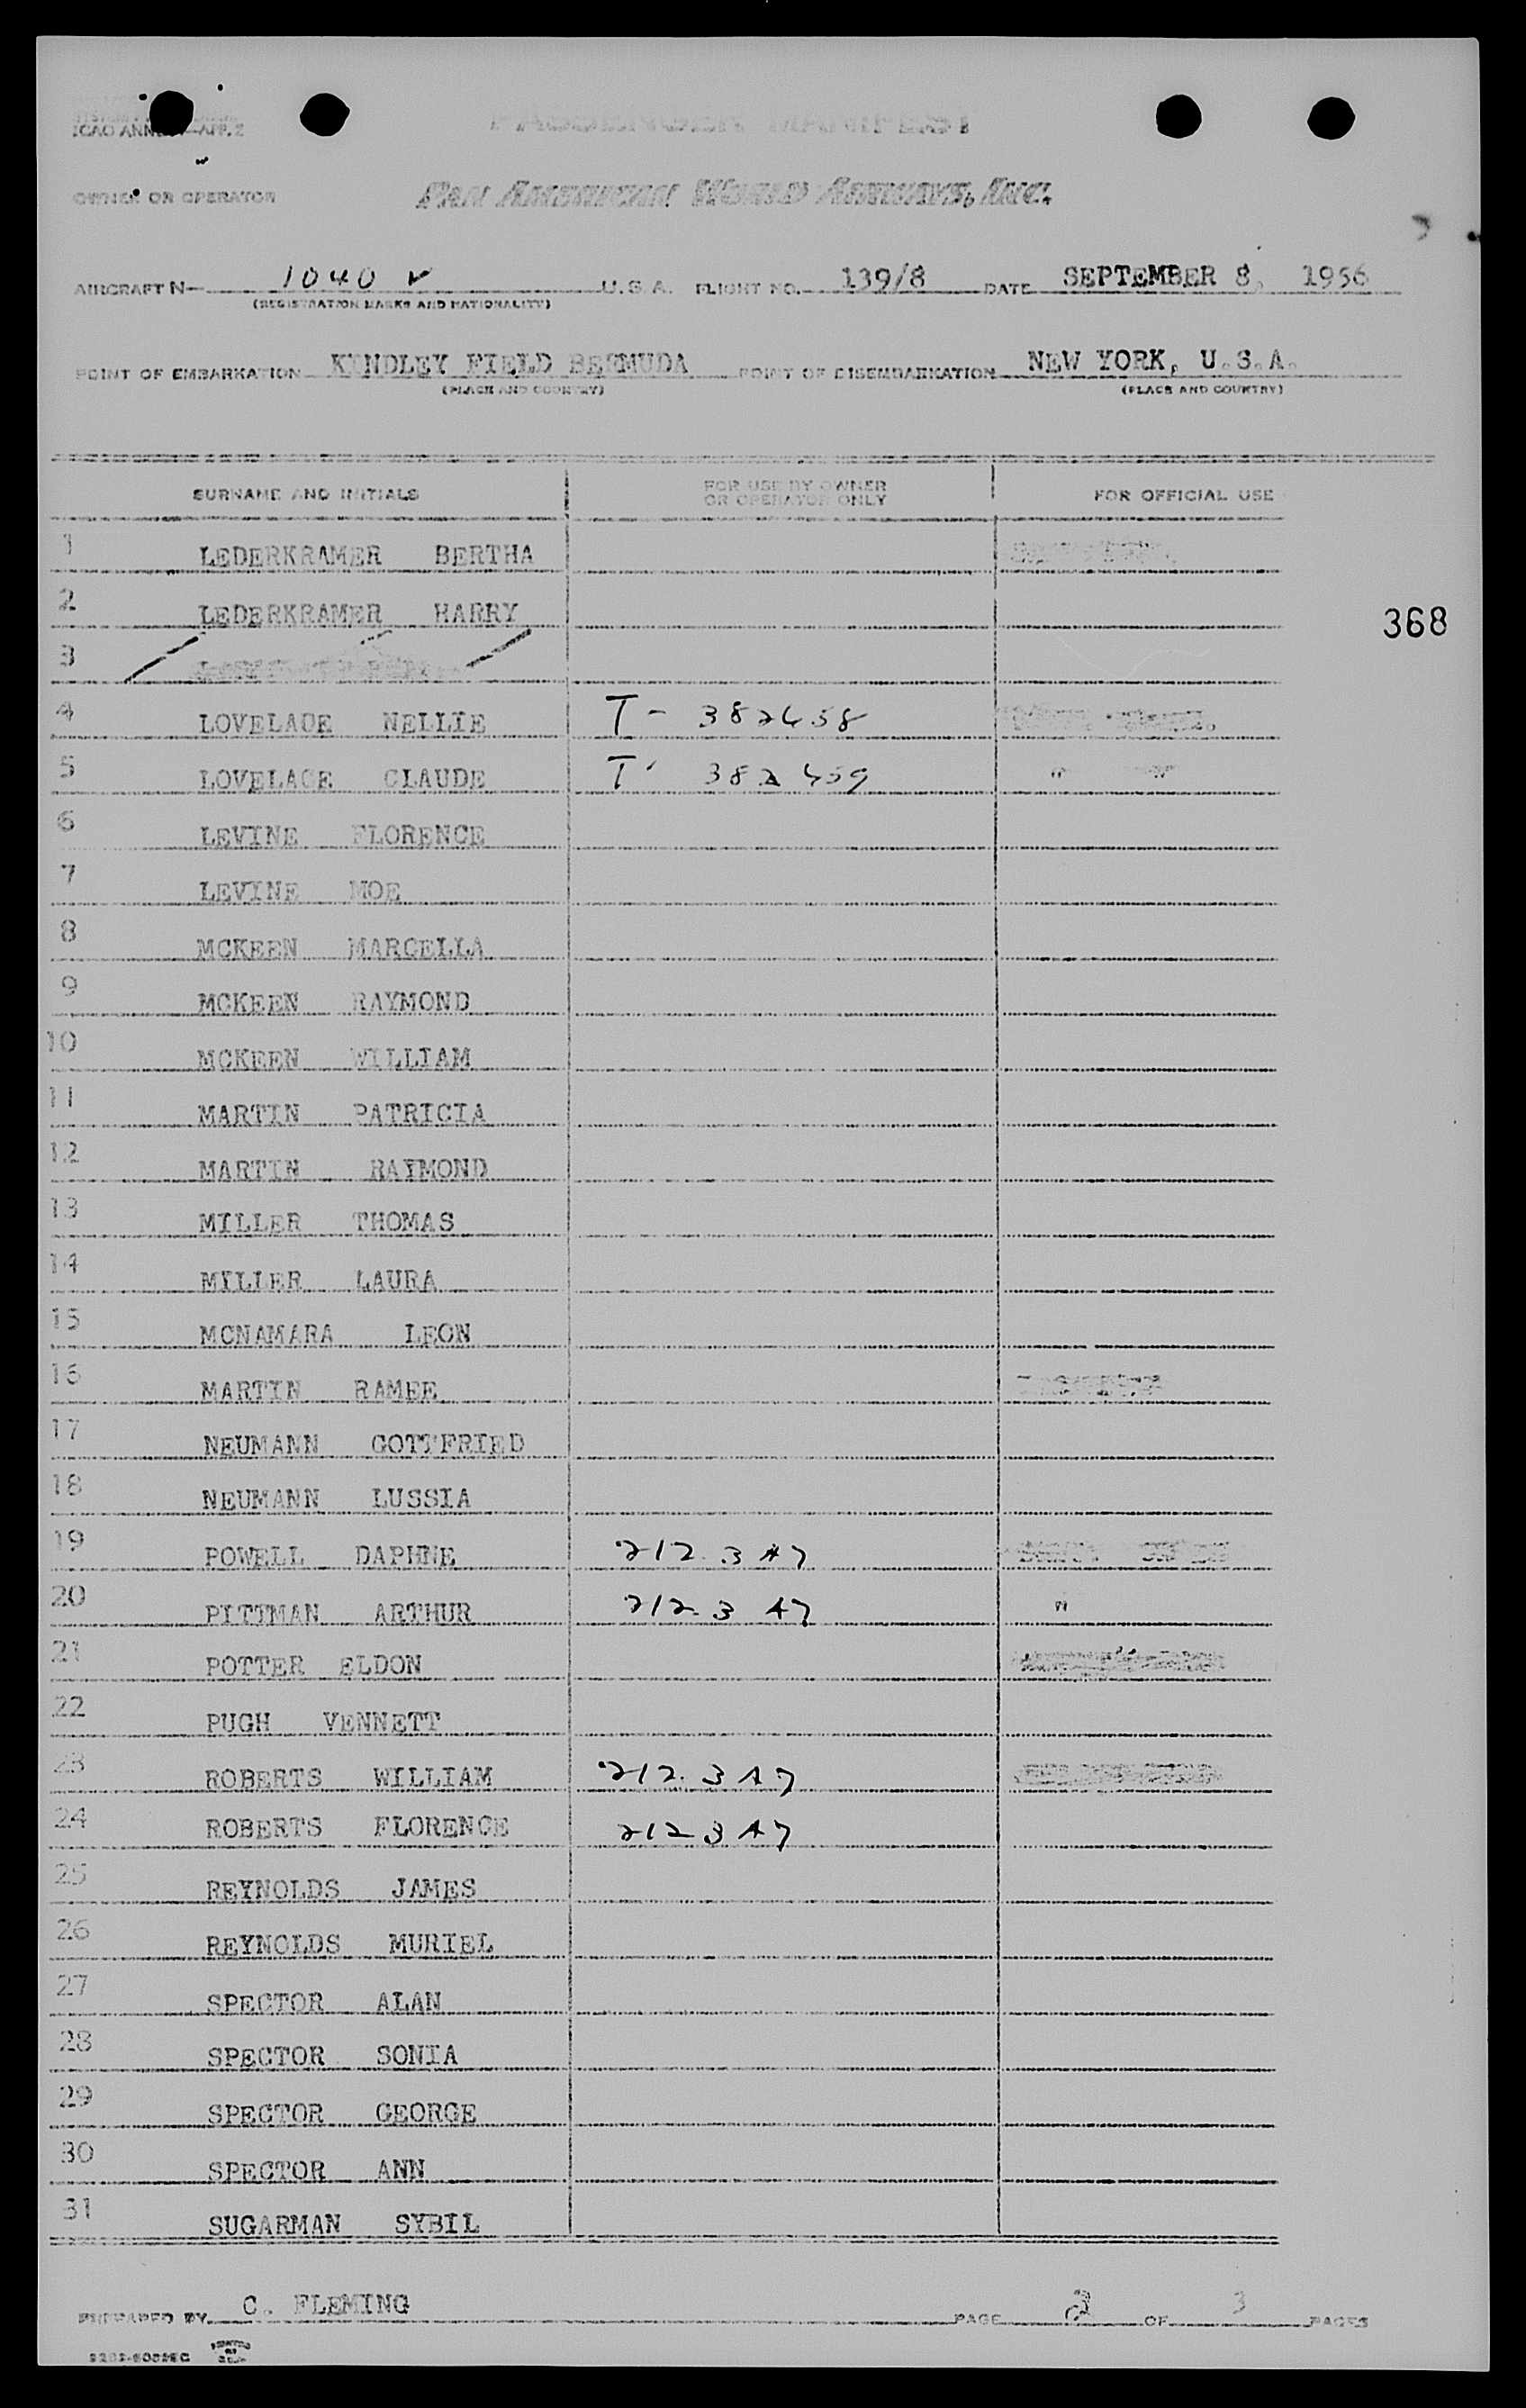 ICAO ANNEX—APP. 2
PASSENGER MANIFEST
OWNER OR OPERATOR PAN AMERICAN WORLD AIRWAYS, INC.
AIRCRAFT N— 1040 V U.S.A. FLIGHT NO. 139/8 DATE SEPTEMBER 8, 1956
(REGISTRATION MARKS AND NATIONALITY)
POINT OF EMBARKATION KINDLEY FIELD BERMUDA POINT OF DISEMBARKATION NEW YORK, U.S.A.
(PLACE AND COUNTRY) (PLACE AND COUNTRY)
SURNAME AND INITIALS FOR USE BY OWNER OR OPERATOR ONLY FOR OFFICIAL USE
1 LEDERKRAMER BERTHA
2 LEDERKRAMER HARRY
368
3
4 LOVELACE NELLIE T- 382458
5 LOVELACE CLAUDE T- 382459 " "
6 LEVINE FLORENCE
7 LEVINE MOE
8 MCKEEN MARCELLA
9 MCKEEN RAYMOND
10 MCKEEN WILLIAM
11 MARTIN PATRICIA
12 MARTIN RAYMOND
13 MILLER THOMAS
14 MILLER LAURA
15 MCNAMARA LEON
16 MARTIN RAMEE
17 NEUMANN GOTTFRIED
18 NEUMANN LUSSIA
19 POWELL DAPHNE 212.3 A7
20 PITTMAN ARTHUR 212.3 A7 "
21 POTTER ELDON
22 PUGH VENNETT
23 ROBERTS WILLIAM 212.3 A7
24 ROBERTS FLORENCE 212 3 A7
25 REYNOLDS JAMES
26 REYNOLDS MURIEL
27 SPECTOR ALAN
28 SPECTOR SONIA
29 SPECTOR GEORGE
30 SPECTOR ANN
31 SUGARMAN SYBIL
PREPARED BY C. FLEMING PAGE 2 OF 3 PAGES